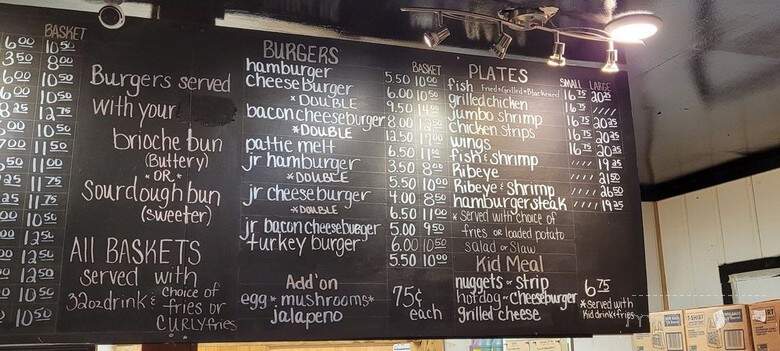 BASKET
6.00 10.50
3.50 8.00
6.00 10.50
6.00 10.50
12.75
6.00 10.50
7.00 11.50
11.00
11.75
11.75
10.50
12.50
12.50
12.50
10.50
10.50
Burgers served
with your
brioche bun
(Buttery)
*OR*
Sourdough bun
(sweeter)
All BASKETS
served with
32oz drink & choice of
fries or
CURLY fries
BURGERS BASKET
hamburger 5.50 10.00
cheese burger 6.00 10.50
*DOUBLE 9.50
bacon cheeseburger 8.00
*DOUBLE 12.50
pattie melt 6.50 11.00
jr hamburger 3.50 8.00
*DOUBLE 5.50 10.00
jr cheese burger 4.00 8.50
*DOUBLE 6.50 11.00
jr bacon cheeseburger 5.00 9.50
turkey burger 6.00 10.50
5.50 10.00
Add'on
egg * mushrooms*
jalapeno
75¢
each
PLATES SMALL LARGE
fish Fried*Grilled*Blackened 16.75 20.25
grilled chicken 16.75 ////
Jumbo shrimp 16.75 20.25
Chicken Strips 16.75 20.25
wings 16.75 20.25
fish & shrimp //// 19.25
Ribeye //// 21.50
Ribeye & Shrimp //// 26.50
hamburger steak //// 19.25
*Served with choice of
fries or loaded potato
salad or slaw
Kid Meal
nuggets or strip
hotdog or cheeseburger 6.75
grilled cheese
*served with
kid drink & fries
T-SHIRT